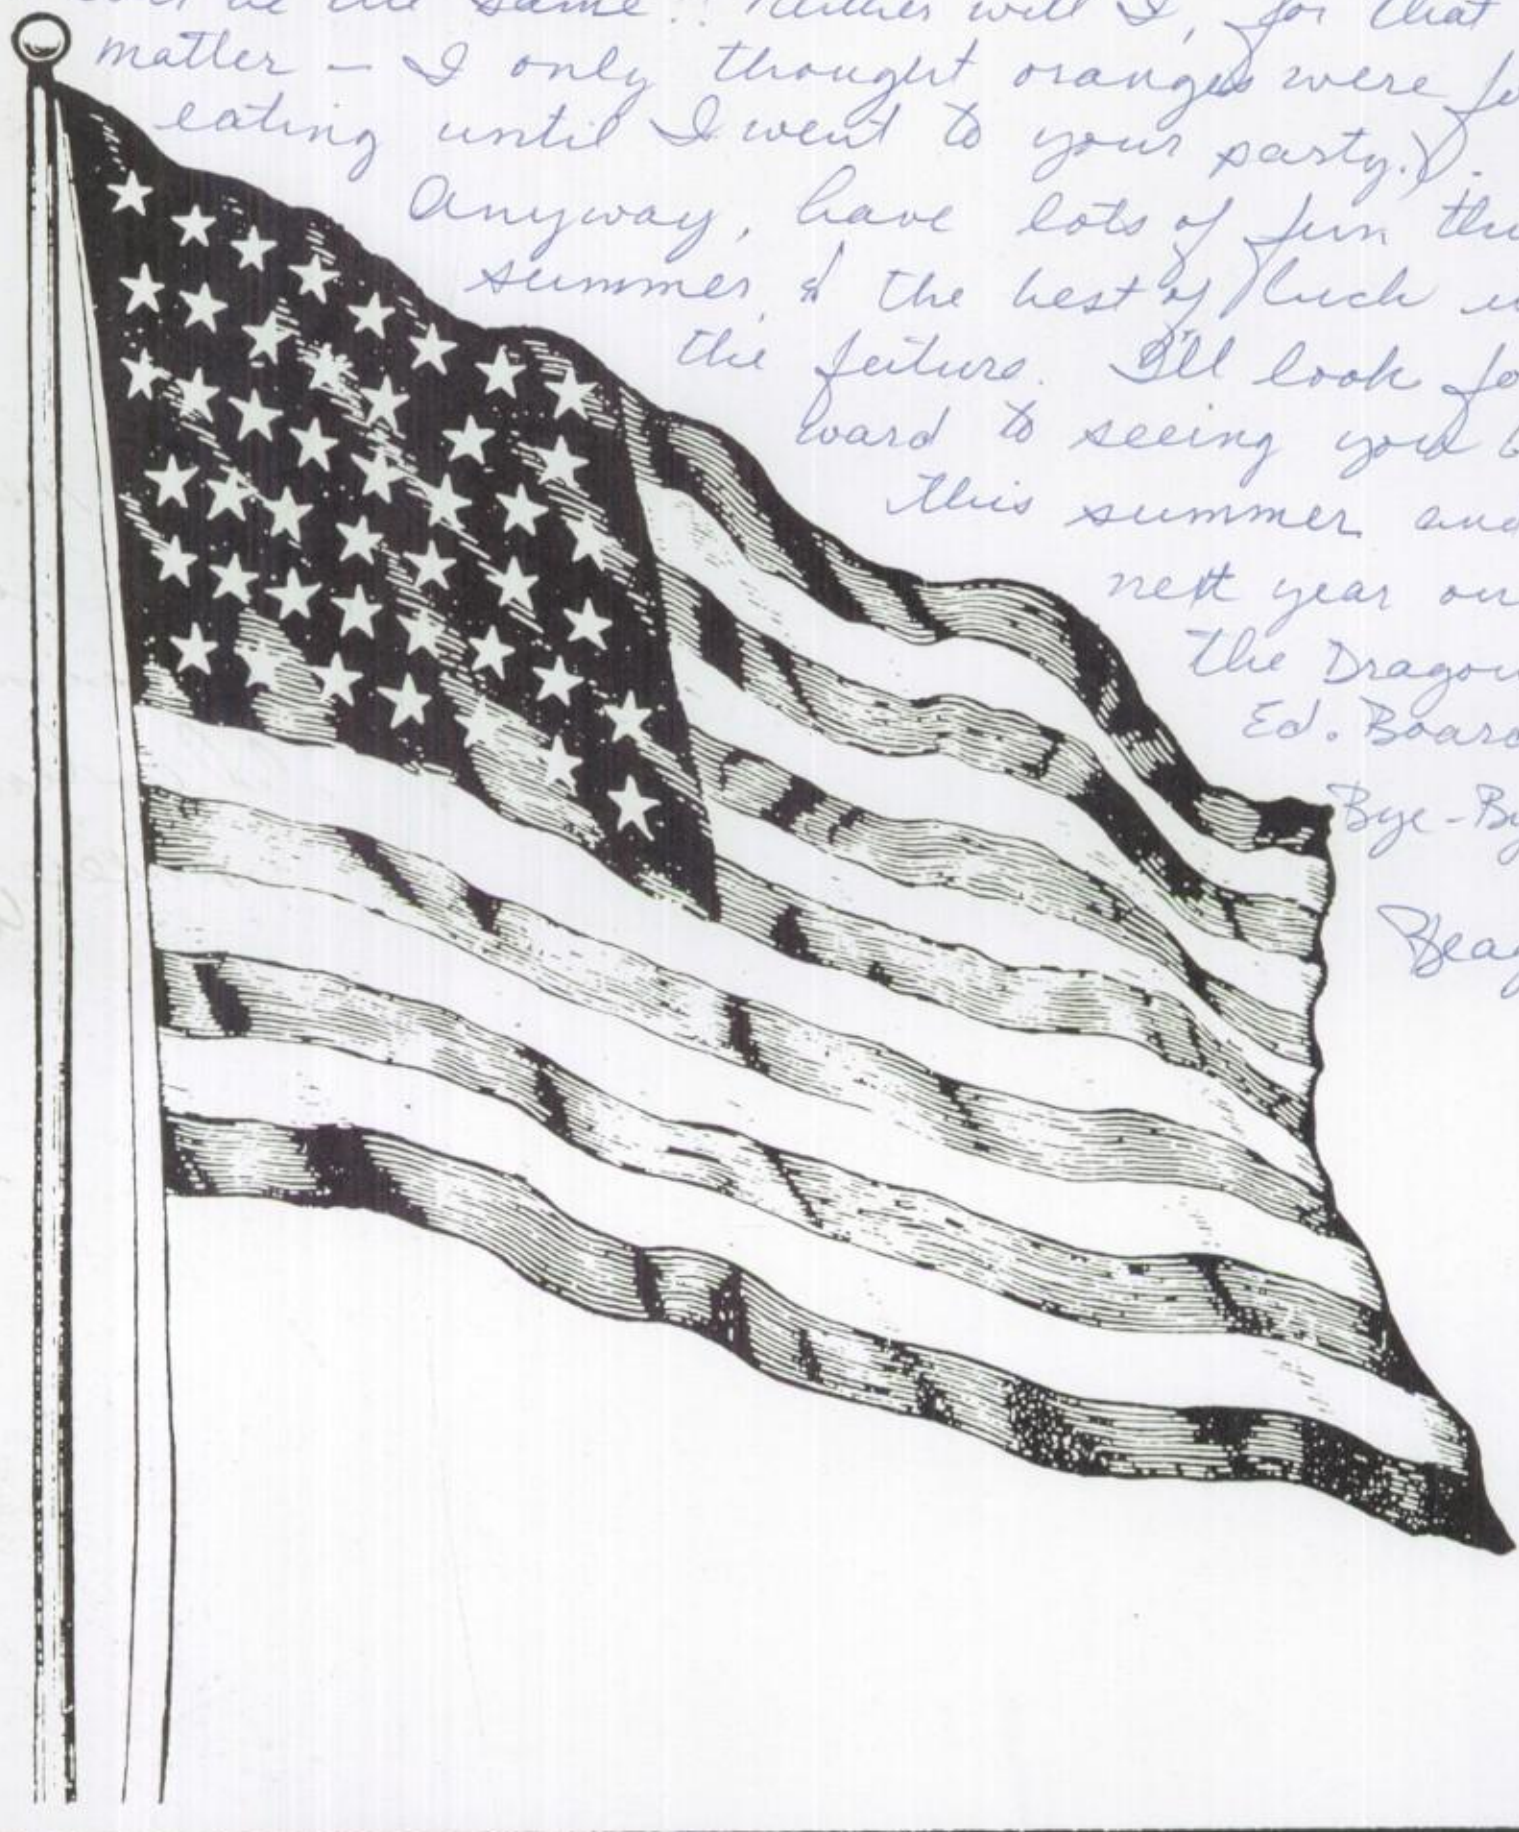 be the same!! Neither will I, for that
matter — I only thought oranges were fo
eating until I went to your party.).
Anyway, have lots of fun thi
summer, & the best of luck i
the future. I'll look fo
ward to seeing you b
this summer and
next year on
the Dragon
Ed. Board
Bye-By